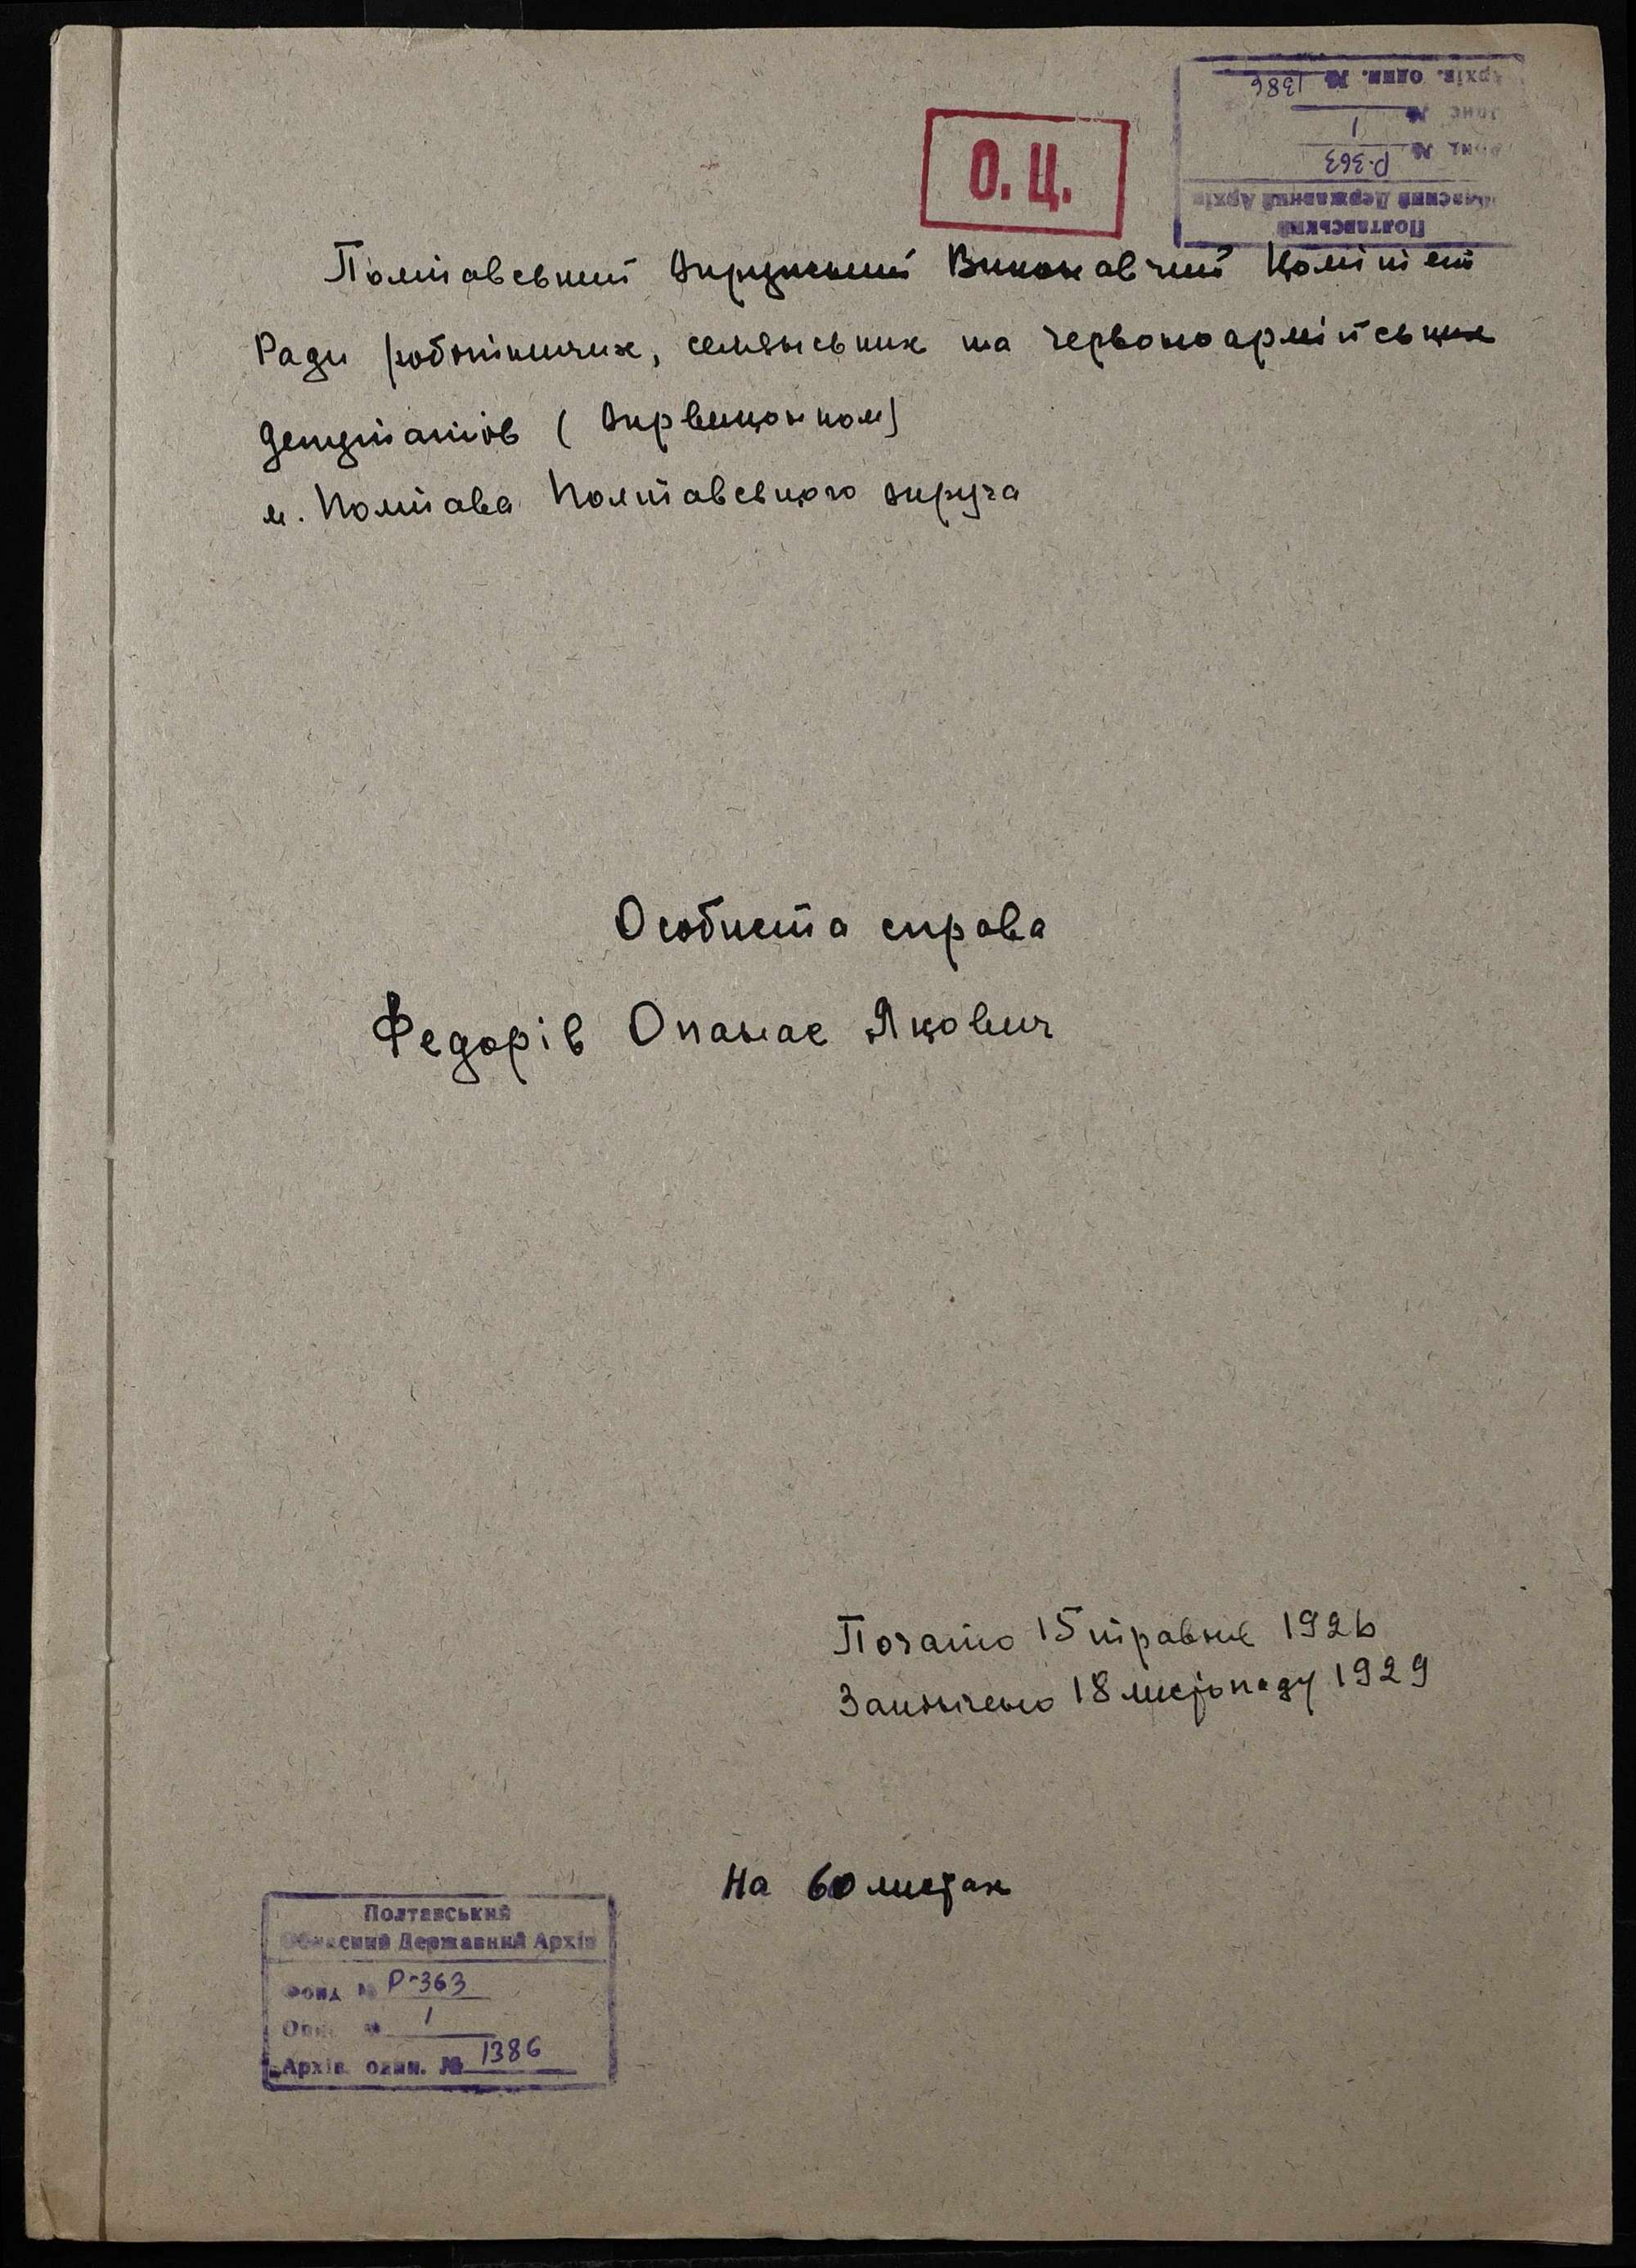 Архів. один. № 1386
Опис № 1
Фонд № Р-363
Обласний Державний Архів
Полтавський
О. Ц.
Полтавський Окружний Виконавчий Комітет
Ради робітничих, селянських та червоноармійських
депутатів (Окрвиконком)
м. Полтава Полтавського округа
Особиста справа
Федорів Опанас Якович
Почато 15 травня 1926
Закінчено 18 листопаду 1929
На 60 листах
Полтавський
Обласний Державний Архів
Фонд № Р-363
Опис № 1
Архів. один. № 1386